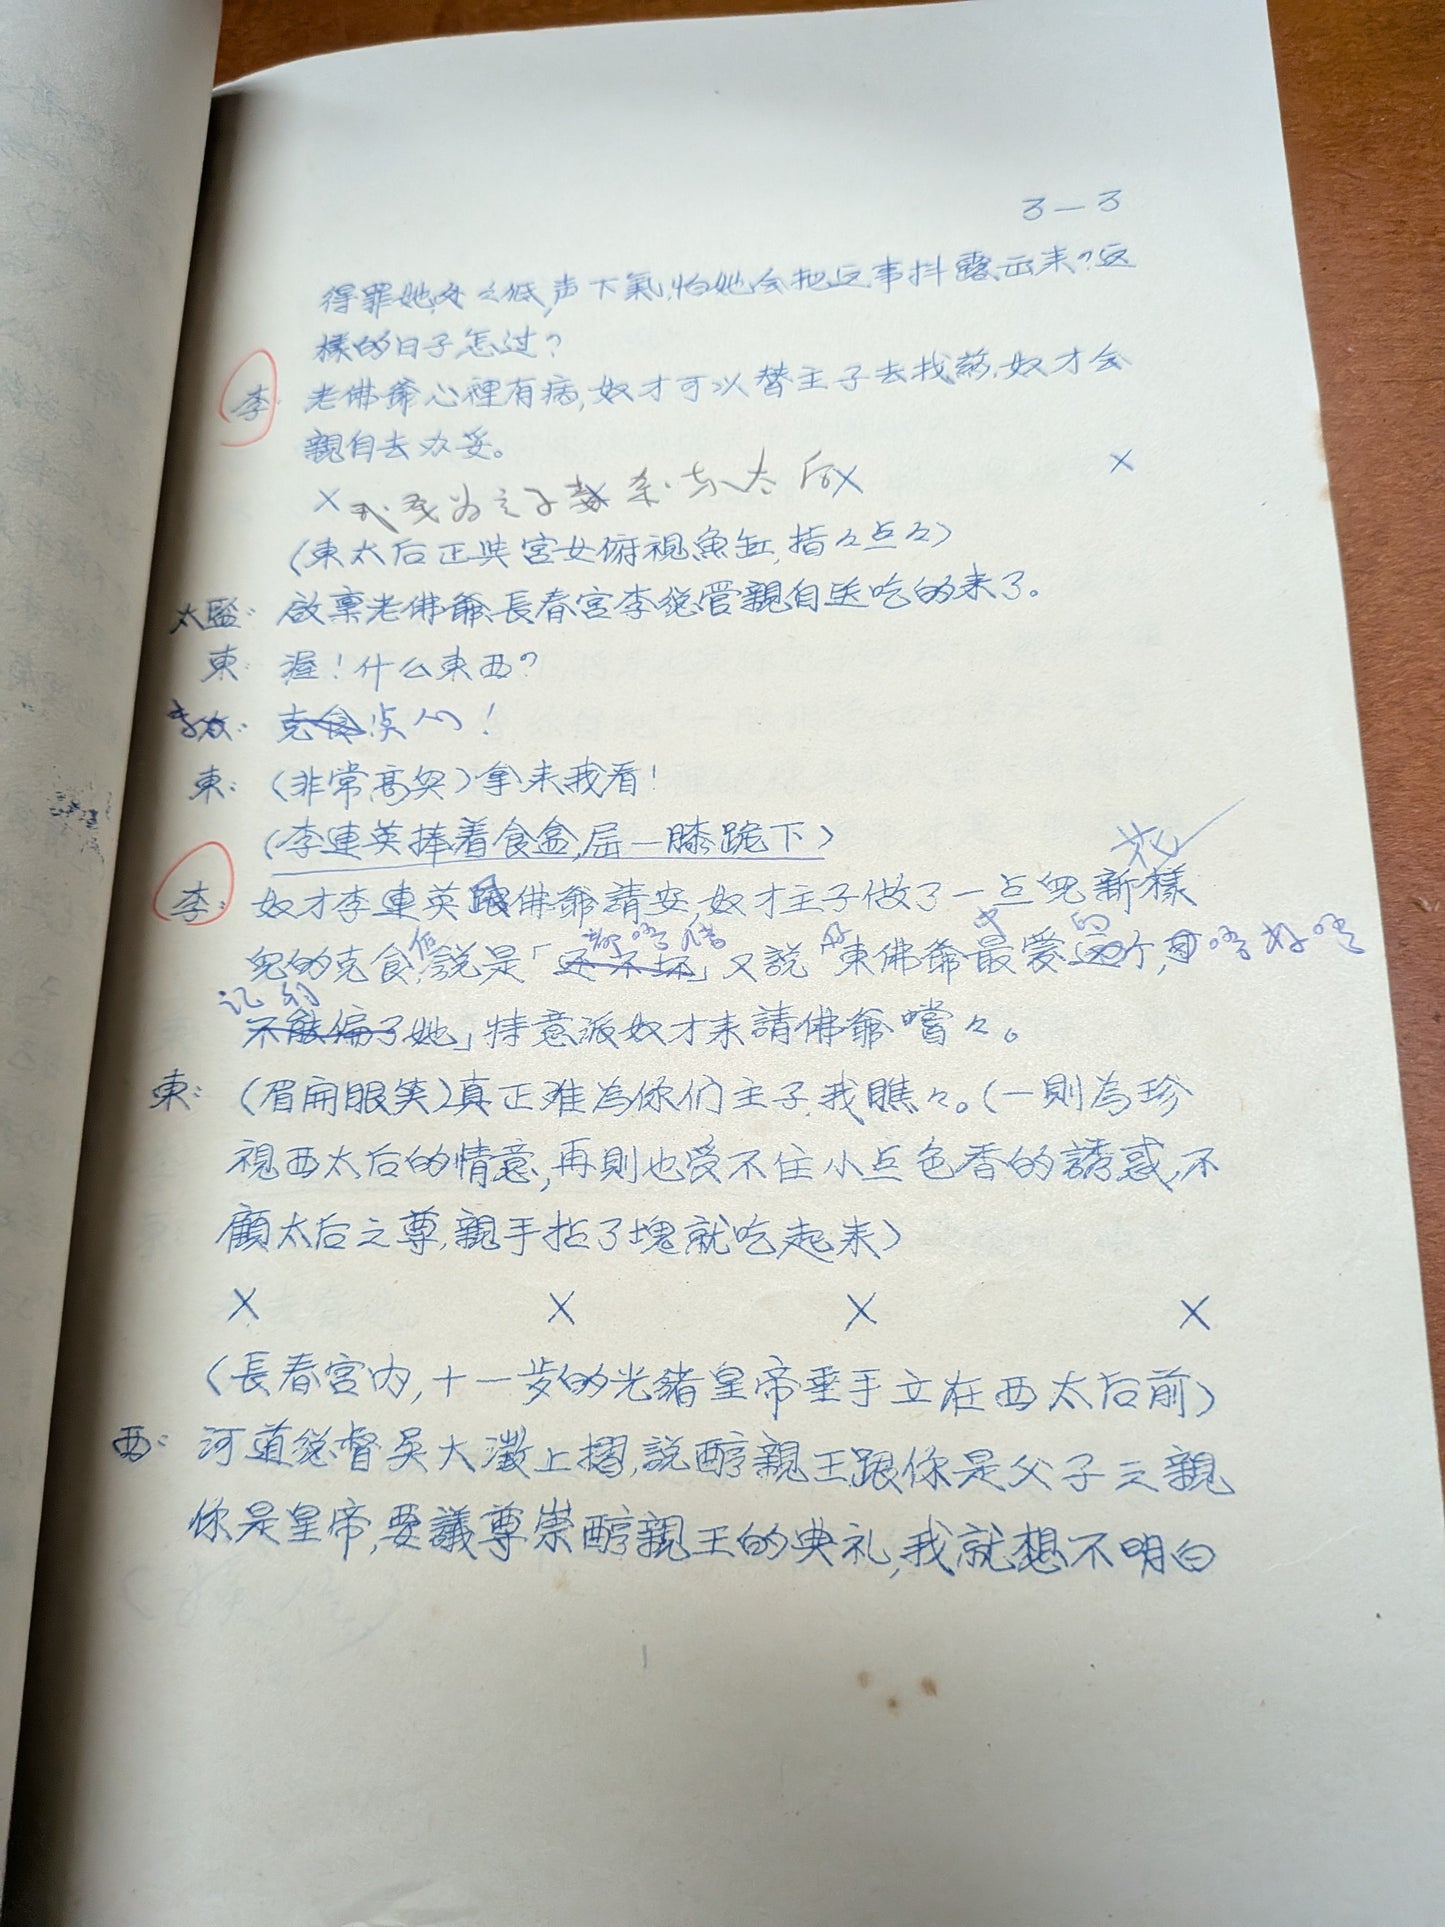 3—3
得罪她,处々低声下氣,怕她会把这事抖露出来?这
樣的日子怎过?
李: 老佛爺心裡有病,奴才可以替主子去找葯,奴才会
親自去办妥。
× × ×
(東太后正與宮女俯視魚缸,指々点々)
太監: 啟稟老佛爺,長春宮李總管親自送吃的来了。
東: 渥!什么東西?
克食点心!
東: (非常高興)拿来我看!
(李連英捧着食盒,屈一膝跪下)
李: 奴才李連英 佛爺請安,奴才主子做了一点兒新樣
兒的克食,說是「还不坏」又説東佛爺最爱这个,
不能偏了她」特意派奴才来請佛爺嚐々。
東: (眉扁眼笑)真正难為你们主子,我瞧々。(一則為珍
視西太后的情意,再則也受不住小点色香的誘惑,不
顧太后之尊,親手拈了塊就吃起来)
× × × ×
(長春宮内,十一岁的光緒皇帝垂手立在西太后前)
西: 河道總督吴大澂上摺,説醇親王跟你是父子之親
你是皇帝,要議尊崇醇親王的典礼,我就想不明白